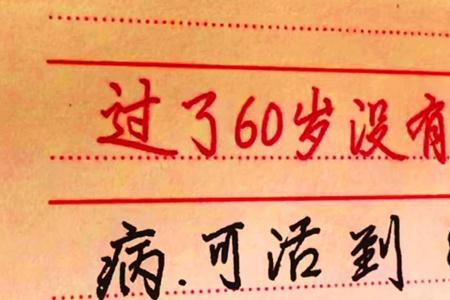 过了60岁没有
病.可活到